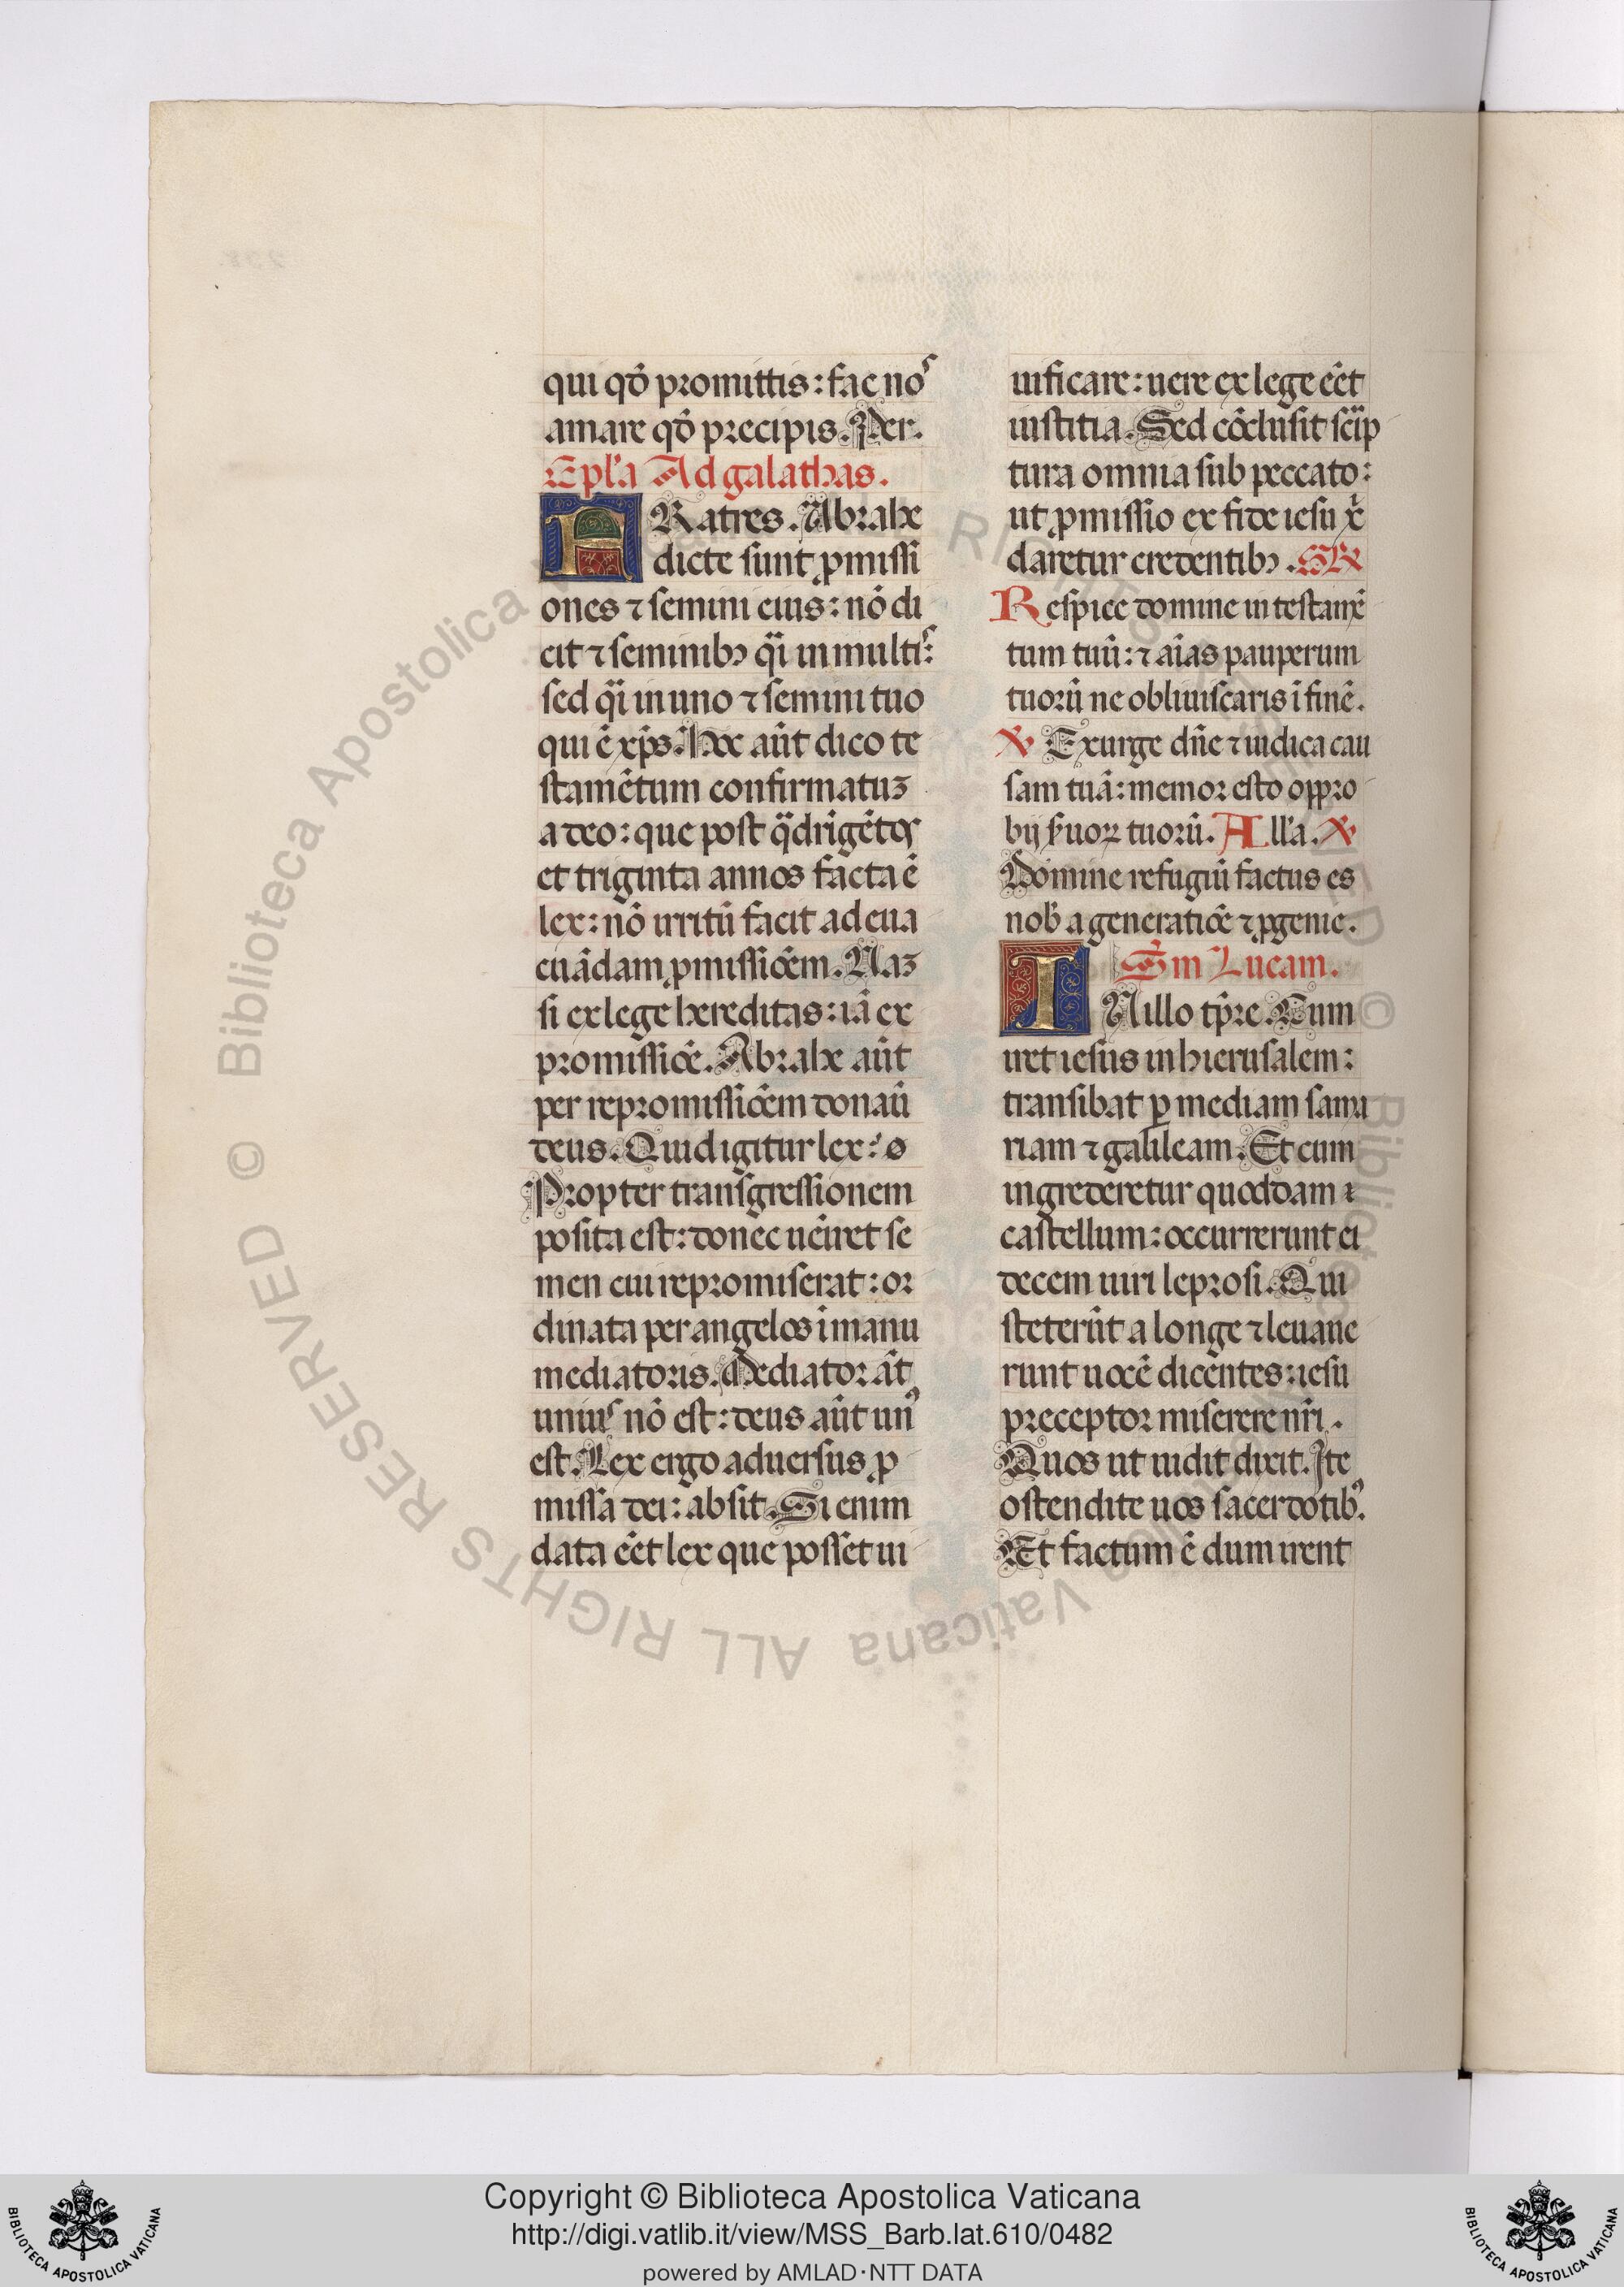 qui qđ promittis: fac nos
amare qđ precipis. Per.
Epl'a Ad galathas.
FRatres. Abrahe
dicte sunt ꝓmissi
ones ⁊ semini eius: nō di
cit ⁊ seminibꝫ q̈i in multis:
sed q̈i in uno ⁊ semini tuo
qui ē xp̄s. Hoc aūt dico te
stamētum confirmatuꝫ
a deo: que post q̈drigētos
et triginta annos facta ē
lex: nō irritū facit ad eua
cuādam ꝓmissiōēm. Naꝫ
si ex lege hereditas: iā ex
promissiōē. Abrahe aūt
per repromissiōēm donaū
deus. Quid igitur lex: ø
Propter transgressionem
posita est: donec uēiret se
men cui repromiserat: or
dinata per angelos ī manu
mediatoris. Mediator āt
unius nō est: deus aūt un⁹
est. Lex ergo aduersus ꝓ
missa dei: absit. Si enim
data eēt lex que posset ui
uificare: uere ex lege eēt
iustitia. Sed cōclusit sc̄ip
tura omnia sub peccato:
ut ꝓmissio ex fide iesu x̄
daretur credentibꝫ. GR
Respice domine in testamē
tum tuū: ⁊ aīas pauperum
tuorū ne obliuiscaris ī finē.
℣ Exurge dn̄e ⁊ iudica cau
sam tuā: memor esto oppro
bij ẜuoꝝ tuorū. All'a. ℣
Domine refugiū factus es
nob̄ a generatiōē ⁊ ꝓgenie.
Sm̄ Lucam.
IN illo tp̄re. Cum
iret iesus in hierusalem:
transibat ꝑ mediam sama
riam ⁊ galileam. Et cum
ingrederetur quoddam
castellum: occurrerunt ei
decem uiri leprosi. Qui
steterūt a longe ⁊ leuaue
runt uocē dicentes: iesu
preceptor miserere nr̄i.
Quos ut uidit dixit. Ite
ostendite uos sacerdotib⁹.
Et factum ē dum irent
Copyright © Biblioteca Apostolica Vaticana
http://digi.vatlib.it/view/MSS_Barb.lat.610/0482
powered by AMLAD·NTT DATA
BIBLIOTECA APOSTOLICA VATICANA
BIBLIOTECA APOSTOLICA VATICANA
© Biblioteca Apostolica Vaticana ALL RIGHTS RESERVED